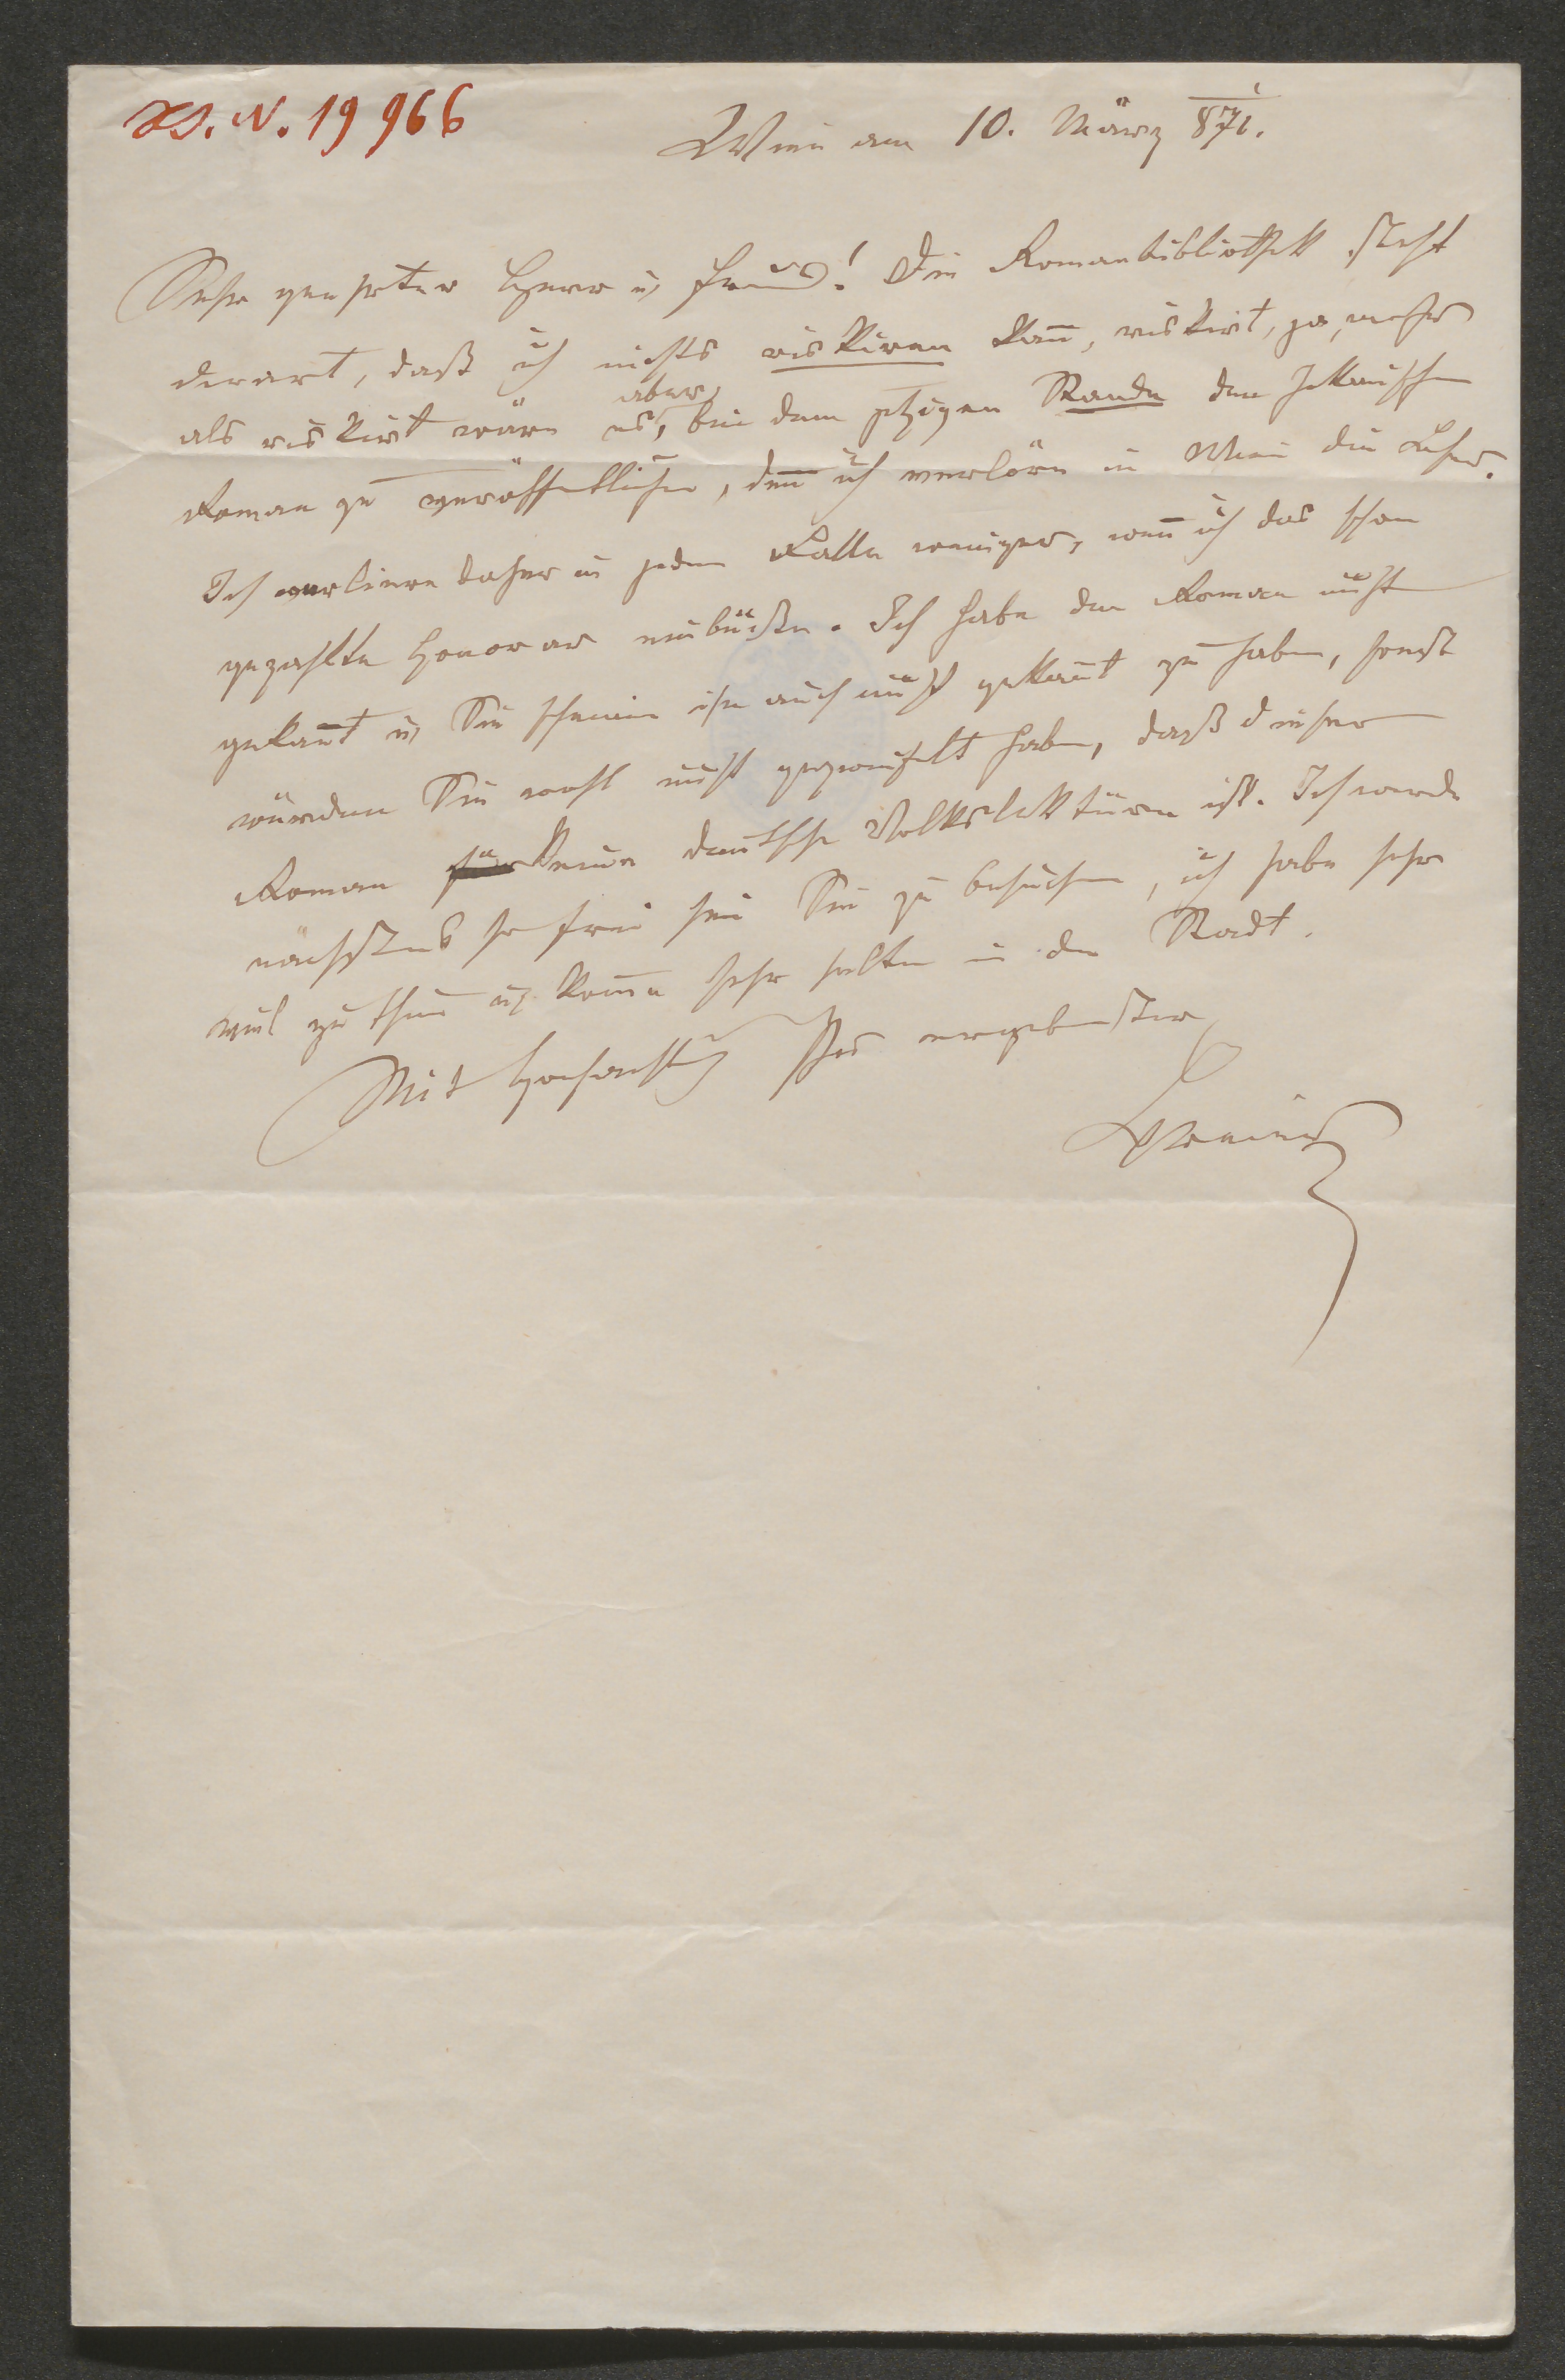 H. I. N. 19966
Wien am 10. März 1871.
Sehr geehrter Herr u. Freund! Die Romanbibliothek steht
derart, daß ich nichts riskiren kann, riskirt, ja mehr
als riskirt wäre es, aber bei dem jetzigen Stande den
Roman zu veröffentlichen, denn ich verlöre in Wien die Leser.
Ich verliere daher in jedem Falle weniger, wenn ich das schon
gezahlte Honorar einbüße. Ich habe den Roman nicht
gekannt u. Sie scheinen ihn auch nicht gekannt zu haben, sonst
würden Sie wohl nicht gezweifelt haben, daß dieser
Roman keine deutsche Volkslektüre ist. Ich werde
nächstens so frei sein Sie zu besuchen, ich habe sehr
viel zu thun u. komme sehr selten in die Stadt.
Mit Hochachtung Ihr ergebenster